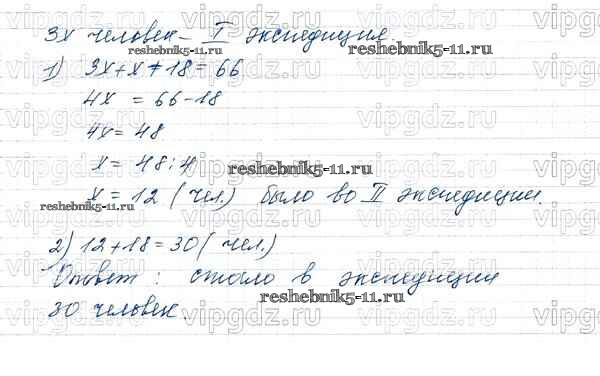 3х человек – I экспедиция
1) 3х+х+18=66
4х = 66-18
4х = 48
х = 48:4
х = 12 (чел.) было во II экспедиции.
2) 12+18=30 (чел.)
Ответ: стало в экспедиции
30 человек.
reshebnik5-11.ru
reshebnik5-11.ru
reshebnik5-11.ru
reshebnik5-11.ru
reshebnik5-11.ru
vipgdz.ru